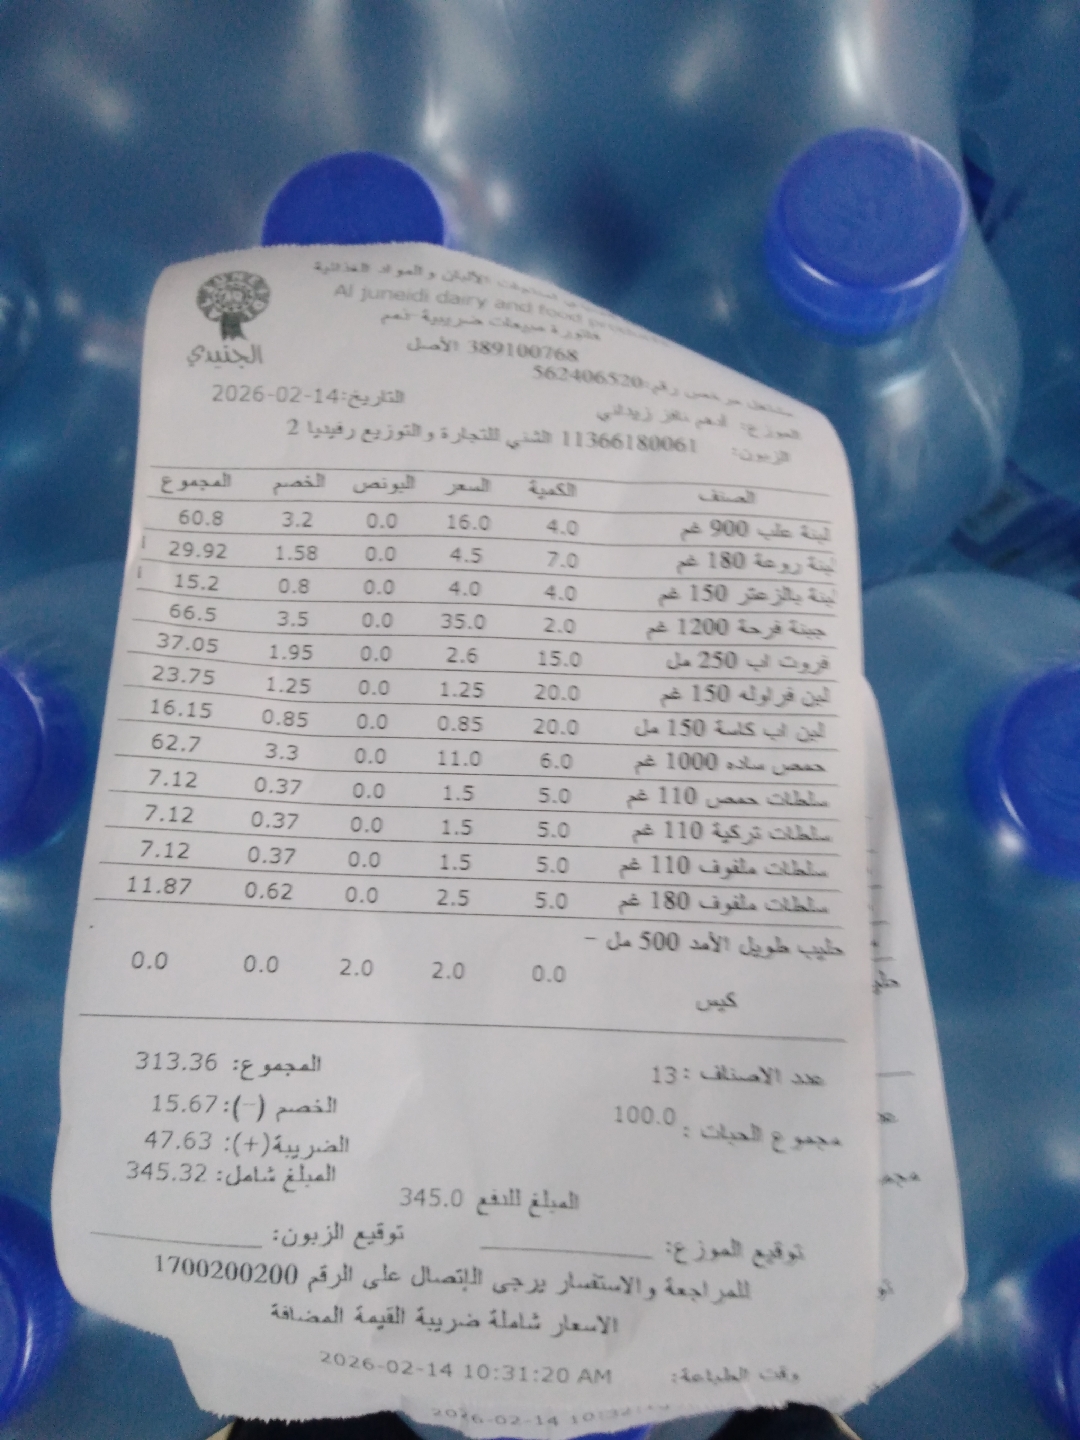 الجنيدي
الألبان والمواد الغذائية
Al juneidi dairy and food
فاتورة مبيعات ضريبية-نعم
389100768 الأصل
مشتغل مرخص رقم:562406520
التاريخ:2026-02-14
الموزع: ادهم نافز زيداني
الزبون: 11366180061 الشني للتجارة والتوزيع رفيديا 2
الصنف الكمية السعر البونص الخصم المجموع
لبنة علب 900 غم 4.0 16.0 0.0 3.2 60.8
لبنة روعة 180 غم 7.0 4.5 0.0 1.58 29.92
لبنة بالزعتر 150 غم 4.0 4.0 0.0 0.8 15.2
جبنة فرحة 1200 غم 2.0 35.0 0.0 3.5 66.5
فروت اب 250 مل 15.0 2.6 0.0 1.95 37.05
لبن فراوله 150 غم 20.0 1.25 0.0 1.25 23.75
لبن اب كاسة 150 مل 20.0 0.85 0.0 0.85 16.15
حمص ساده 1000 غم 6.0 11.0 0.0 3.3 62.7
سلطات حمص 110 غم 5.0 1.5 0.0 0.37 7.12
سلطات تركية 110 غم 5.0 1.5 0.0 0.37 7.12
سلطات ملفوف 110 غم 5.0 1.5 0.0 0.37 7.12
سلطات ملفوف 180 غم 5.0 2.5 0.0 0.62 11.87
حليب طويل الأمد 500 مل -
كيس 0.0 2.0 2.0 0.0 0.0
عدد الاصناف : 13 المجموع: 313.36
مجموع الحبات : 100.0 الخصم (-): 15.67
الضريبة(+): 47.63
المبلغ شامل: 345.32
المبلغ للدفع 345.0
توقيع الموزع: توقيع الزبون:
للمراجعة والاستفسار يرجى الإتصال على الرقم 1700200200
الاسعار شاملة ضريبة القيمة المضافة
وقت الطباعة: 2026-02-14 10:31:20 AM
2026-02-14